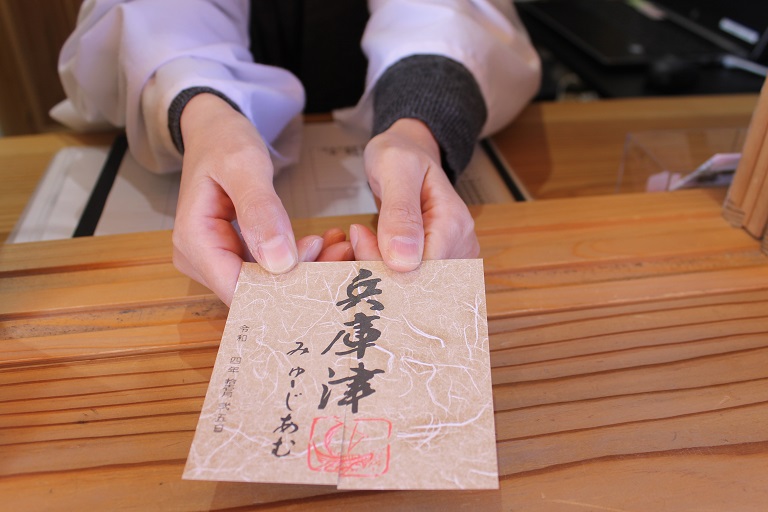 兵庫津
みゅーじあむ
令和 四年 拾壱月 弐五日